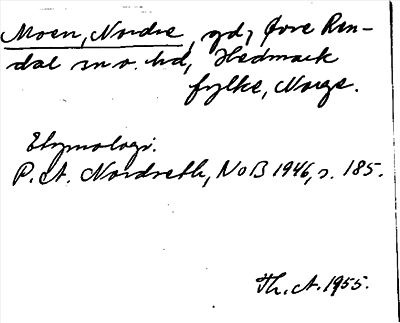 Moen, Nordre, gd, Øvre Ren-
dal sn o. hd, Hedmark
fylke, Norge.
Etymologi.
P. A. Nordseth, NoB 1946, s. 185.
Th. A. 1955.